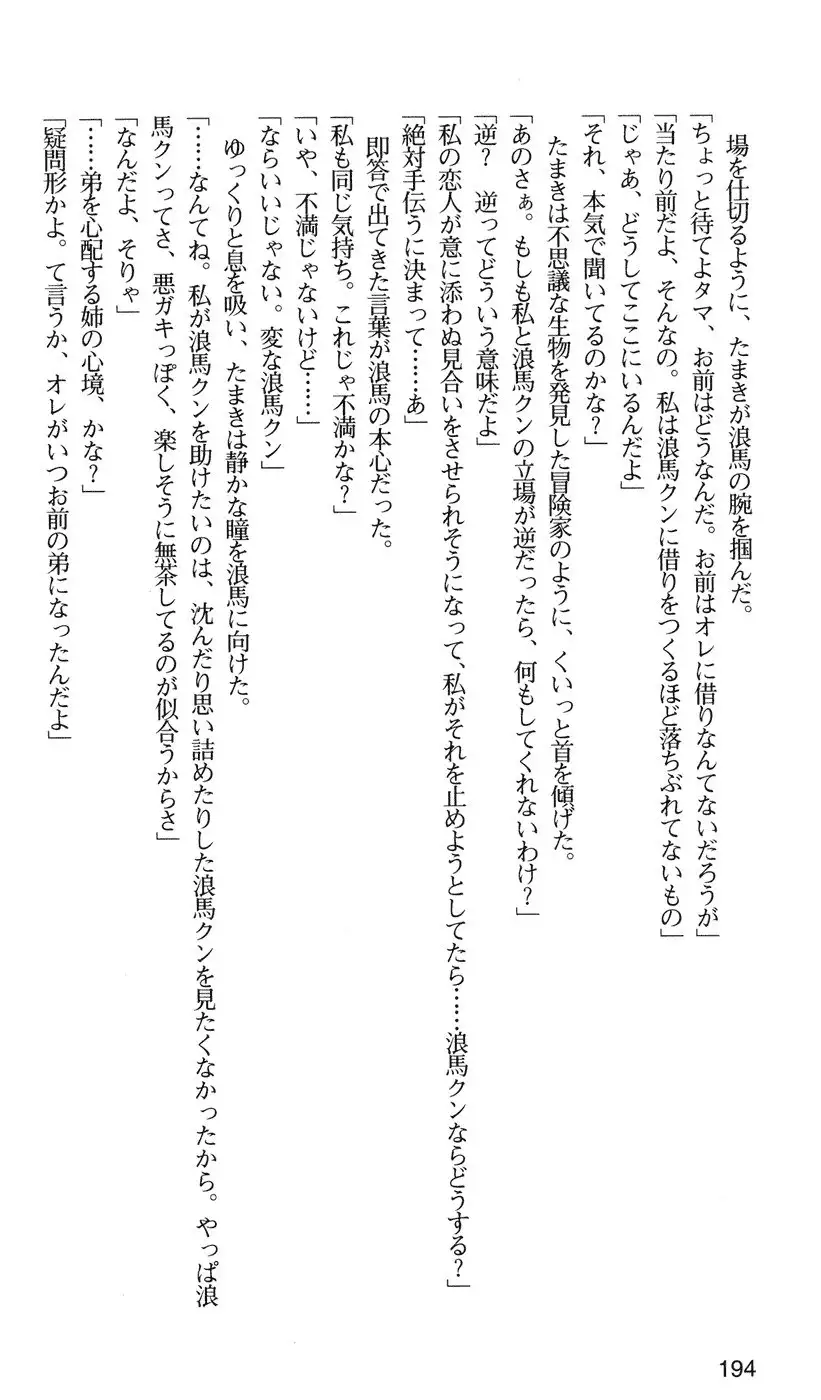 場を仕切るように、たまきが浪馬の腕を掴んだ。
「ちょっと待てよタマ、お前はどうなんだ。お前はオレに借りなんてないだろうが」
「当たり前だよ、そんなの。私は浪馬クンに借りをつくるほど落ちぶれてないもの」
「じゃあ、どうしてここにいるんだよ」
「それ、本気で聞いてるのかな？」
たまきは不思議な生物を発見した冒険家のように、くいっと首を傾げた。
「あのさぁ。もしも私と浪馬クンの立場が逆だったら、何もしてくれないわけ？」
「逆？　逆ってどういう意味だよ」
「私の恋人が意に添わぬ見合いをさせられそうになって、私がそれを止めようとしてたら……浪馬クンならどうする？」
「絶対手伝うに決まって……あ」
即答で出てきた言葉が浪馬の本心だった。
「私も同じ気持ち。これじゃ不満かな？」
「いや、不満じゃないけど……」
「ならいいじゃない。変な浪馬クン」
ゆっくりと息を吸い、たまきは静かな瞳を浪馬に向けた。
「……なんてね。私が浪馬クンを助けたいのは、沈んだり思い詰めたりした浪馬クンを見たくなかったから。やっぱ浪
馬クンってさ、悪ガキっぽく、楽しそうに無茶してるのが似合うからさ」
「なんだよ、そりゃ」
「……弟を心配する姉の心境、かな？」
「疑問形かよ。て言うか、オレがいつお前の弟になったんだよ」
194